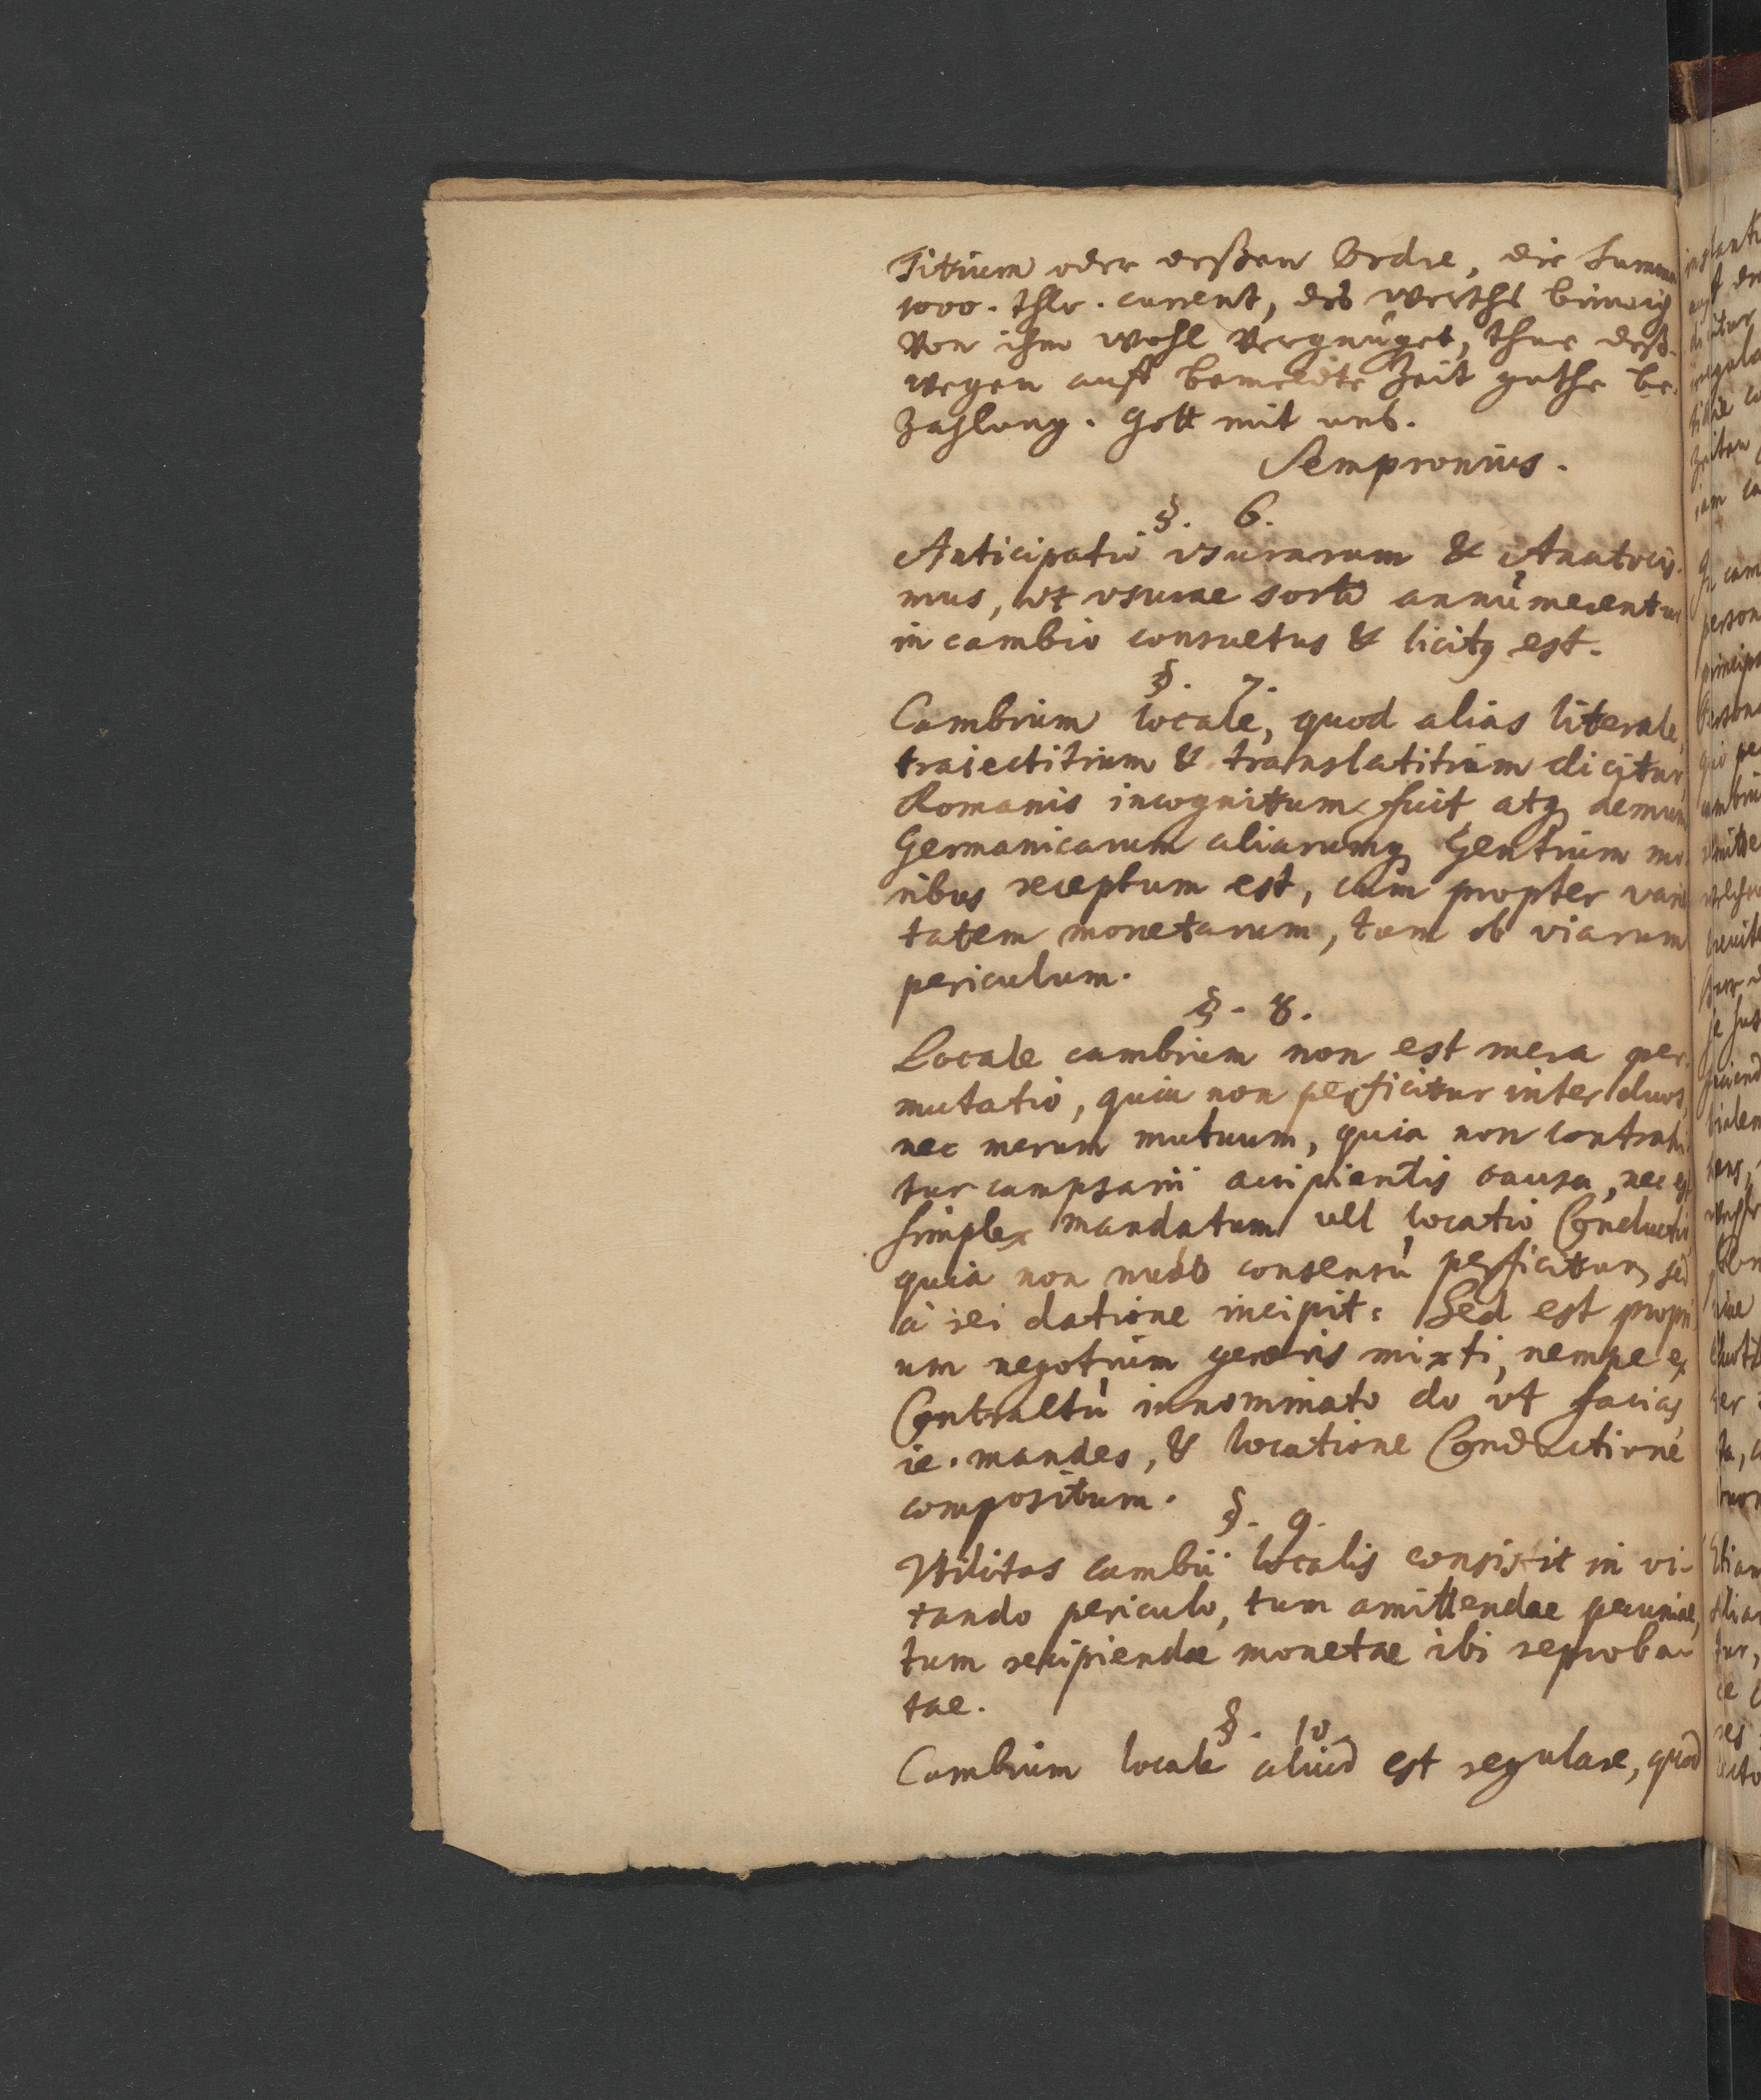 Titium oder deßen Ordre, die Summa
1000. Thlr. current, des werths bin ich
von ihm wohl vergnüget, thue deß-
wegen auff bemeldte Zeit guthe be-
zahlung. Gott mit uns.
Sempronius.
§. 6.
Anticipatio usurarum & Anatocis-
mus, ut usurae sorti annùmerentur
in cambio consuetus & licitq est.
§. 7.
Cambium locale, quod alias literale,
traiectitium & translatitium dicitur,
Romanis incognitum fuit atq demum
Germanicarum aliarumq Gentium mo-
ribus receptum est, cùm propter varie
tatem monetarum, tum ob viarum
periculum.
§. 8.
Locale cambium non est mera per-
mutatio, quia non perficitur inter duos,
nec merum mutuum, quia non contrahi
tur campsarii accipientis causa, nec est
simplex mandatum vel locatio Conductio,
quia non nudo consensù perficitur, sed
à rei datione incipit: Sed est propri
um negotium generis mixti, nempe ex
Contractù innominato do ut facias,
ie. mandes, & locatione Conductione
compositum.
§. 9.
Utilitas cambii localis consistit in vi-
tando periculo, tum amittendae pecuniae,
tum recipiendae monetae ibi reproba-
tae.
§. 10.
Cambium locale aliud est regulare, quod